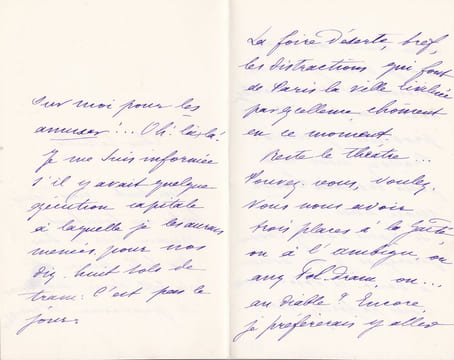 sur moi pour les
amuser!... Oh! là là!
Je me suis informée
s'il y avait quelque
exécution capitale
à laquelle je les aurais
menés, pour nos
dix-huit sols de
tram: C'est pas le
jour.
La foire déserte, bref,
les distractions qui font
de Paris la ville civilisée
par excellence chôment
en ce moment.
Reste le théâtre...
Pouvez-vous, voulez-
vous nous avoir
trois places à la Gaîté
ou à l'ambigu, ou
aux Fol. Dram, ou...
au diable? Encore,
je préfèrerais y aller